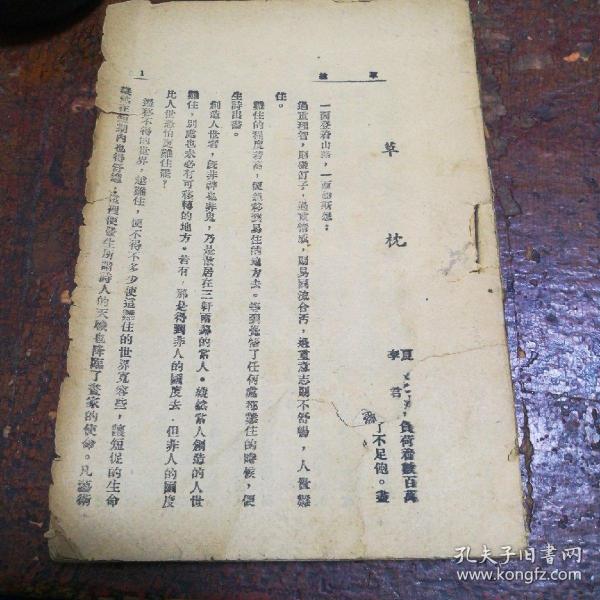 1
草枕
草枕
夏
李 君
負荷着數百萬
了不足飽。盡
一面登着山路，一面
過重理智，則 釘子，過重情感，則易同流合汚，過重意志則不舒暢，人世難
住。
難住的程度若高，便 移到易住的地方去。等到覺悟了任何處都難住的時候，便
生詩出畫。
創造人世者，旣非神也非鬼，乃是散居在三軒兩鄰的常人。縱然常人創造的人世
難住，別處也未必有可移轉的地方。若有，那是得到非人的國度去，但非人的國度
比人世恐怕更難住罷？
遷移不得的世界，越難住，便不得不多少使這難住的世界寬容些，讓短促的生命
在 期內也得舒適，這裡便發生所謂詩人的天職也降臨了畫家的使命。凡藝術
孔夫子旧書网
www.kongfz.com